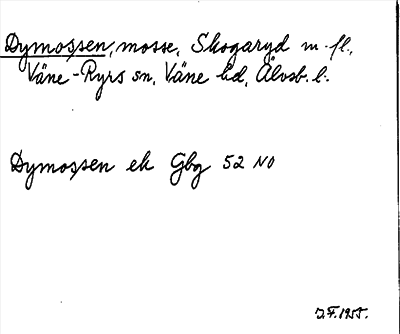 Dymossen, mosse, Skogaryd m. fl.,
Väne-Ryrs sn, Väne hd, Älvsb. l.
Dymossen ek Gbg 52 NO
J.F. 1955.